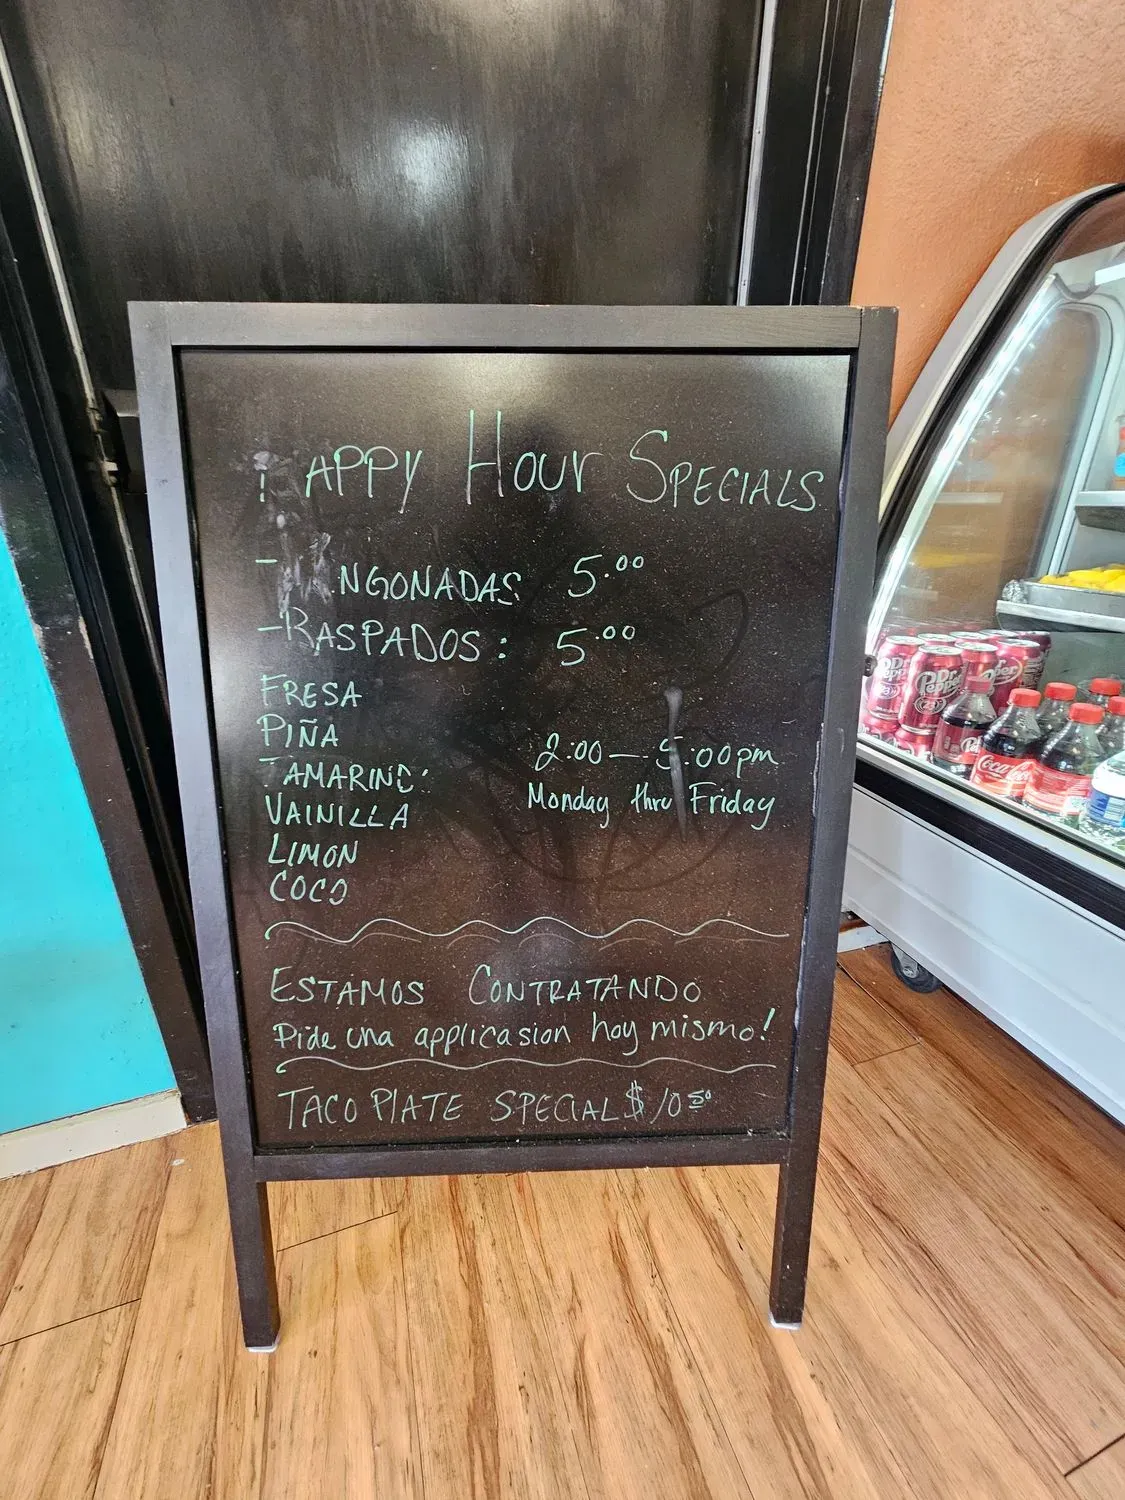 APPY HOUR SPECIALS
- NGONADAS 5.00
- RASPADOS: 5.00
FRESA
PIÑA
TAMARIND:
VAINILLA
LIMON
COCO
2:00 — 5:00pm
Monday thru Friday
ESTAMOS CONTRATANDO
Pide una applicasion hoy mismo!
TACO PLATE SPECIAL $10.50
Dr Pepper
Dr Pepper
Coca-Cola